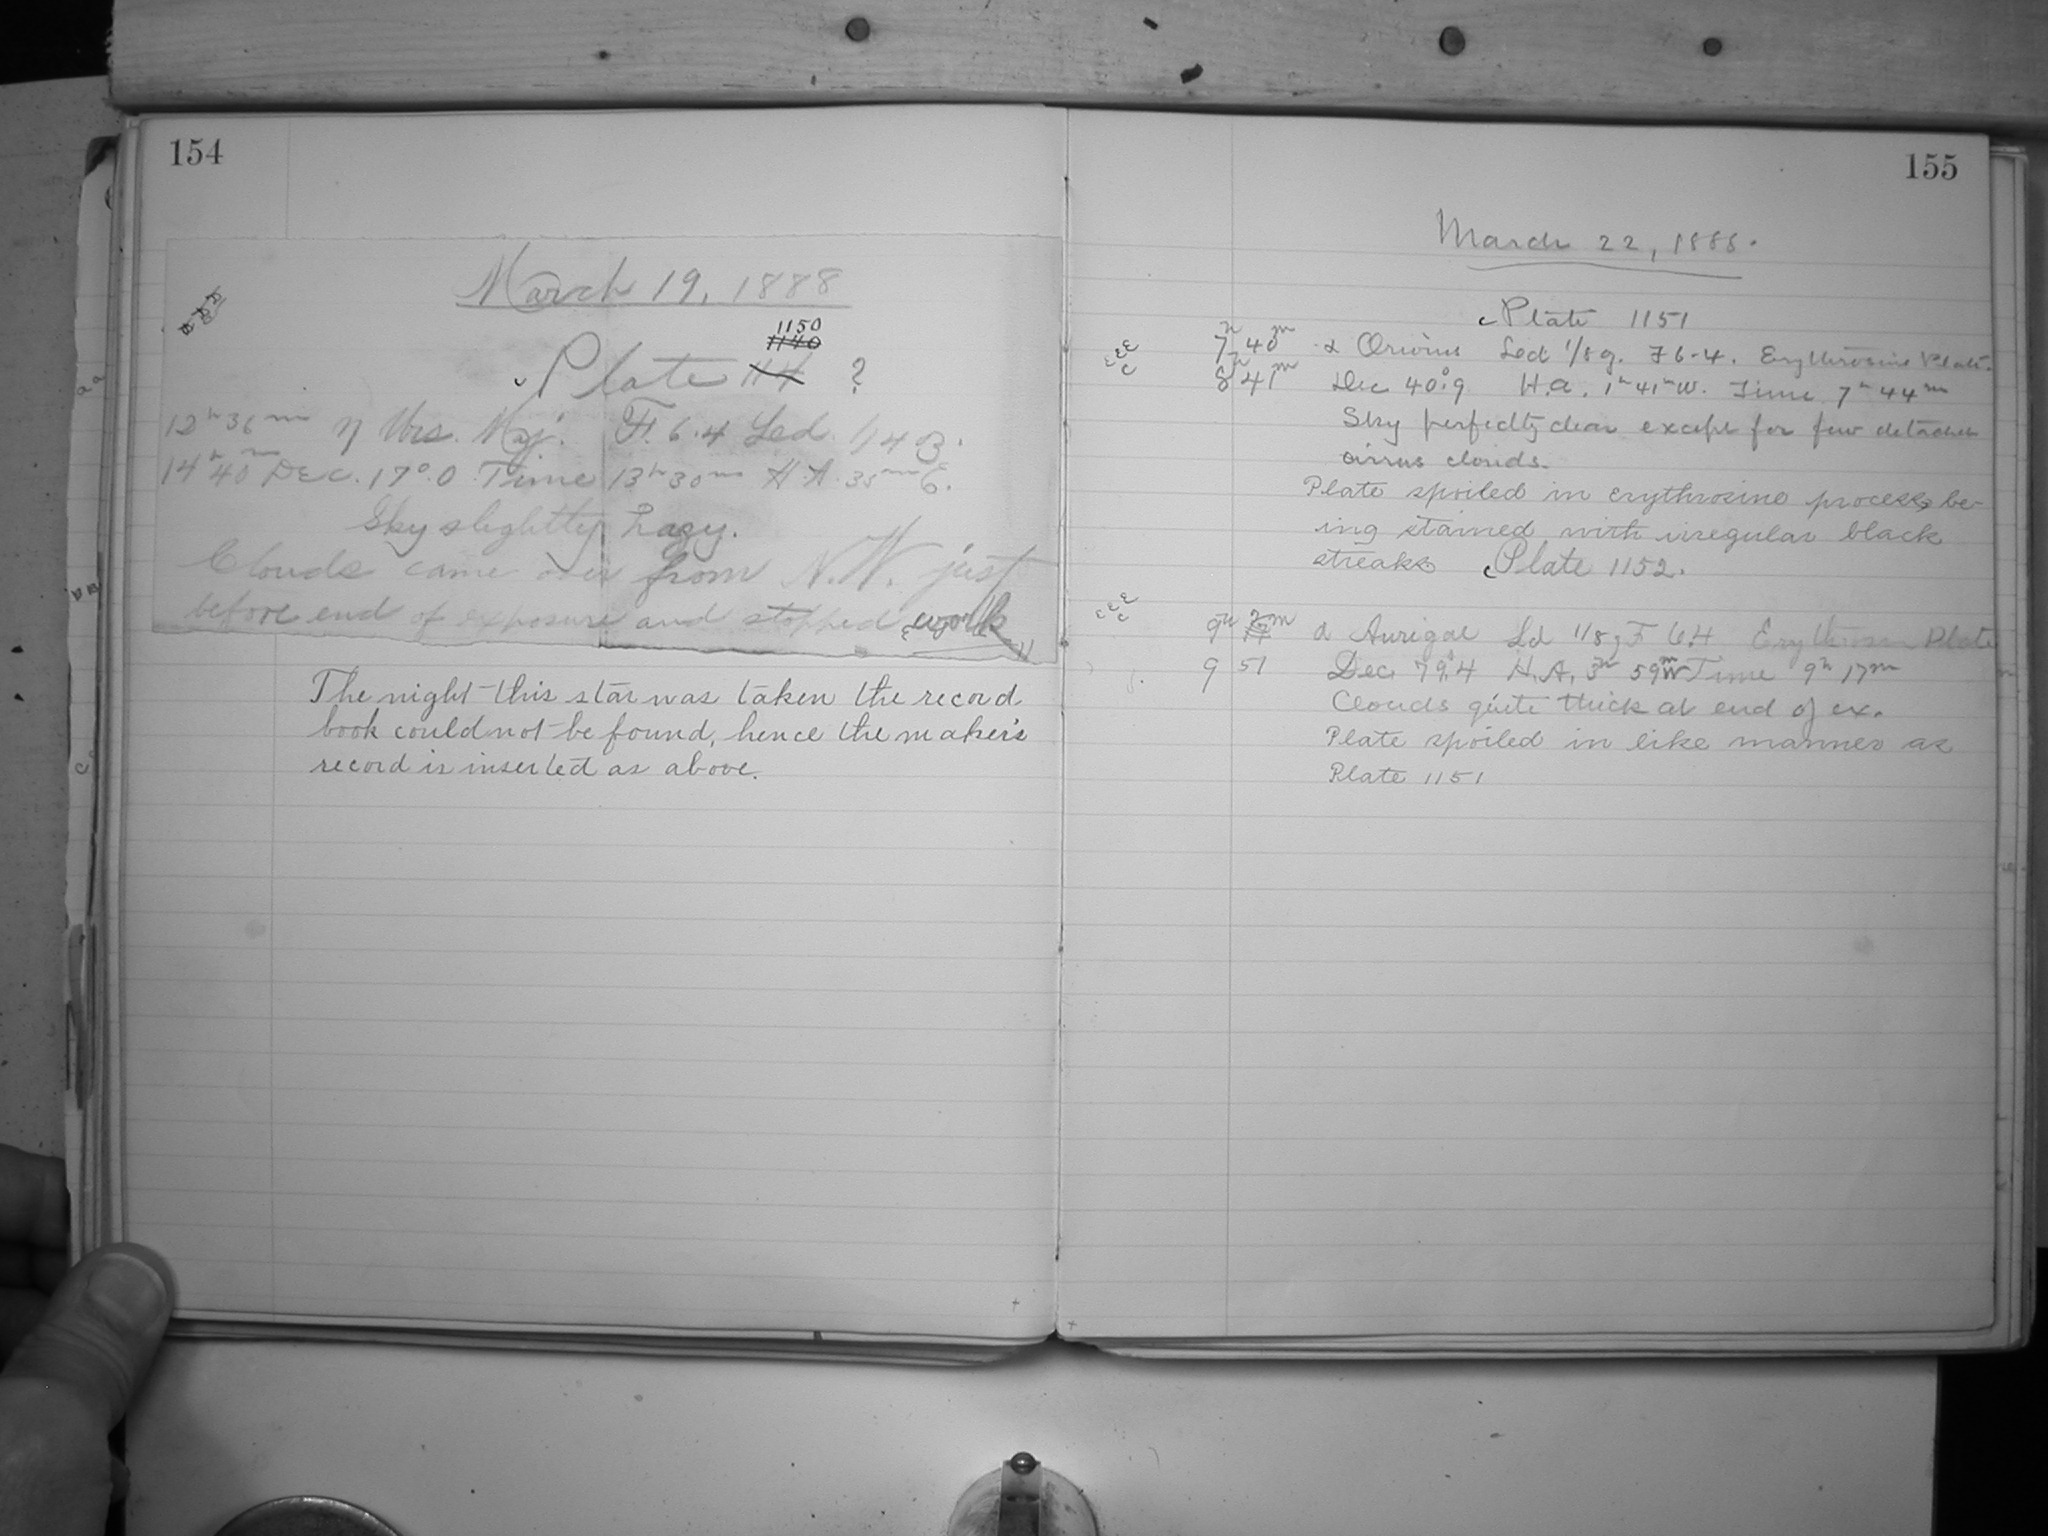 154
March 19, 1888
1150
1140
Plate 114 ?
12h 36m η Urs. Maj. F. 6.4 Led. 1/4 B.
14h 40m Dec. 17°.0 Time 13h 30m H.A. 35m E.
Sky slightly hazy.
Clouds came over from N.W. just
before end of exposure and stopped work
The night this star was taken the record
book could not be found, hence the maker's
record is inserted as above.
155
March 22, 1888.
Plate 1151
7h 40m α Orionis Led 1/8 g. F 6.4. Erythrosine Plate.
8h 41m Dec 40°.9 H.A. 1h 41m W. Time 7h 44m
Sky perfectly clear except for few detached
cirrus clouds.
Plate spoiled in erythrosine process, be-
ing stained with irregular black
streaks
Plate 1152.
9h α Aurigae Ld 1/8 g F 6.4 Erythrosin Plate
9 51 Dec. 79.4 H.A. 3h 59m W Time 9h 17m
Clouds quite thick at end of ex.
Plate spoiled in like manner as
Plate 1151